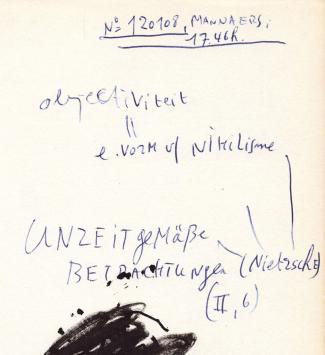 Nº 120108, MANNAERS,
17.46h.
objectiviteit
||
e. vorm v/ Nihilisme
UNZEITgeMäße
BETRACHTUNgen (Nietzsche)
(II, 6)